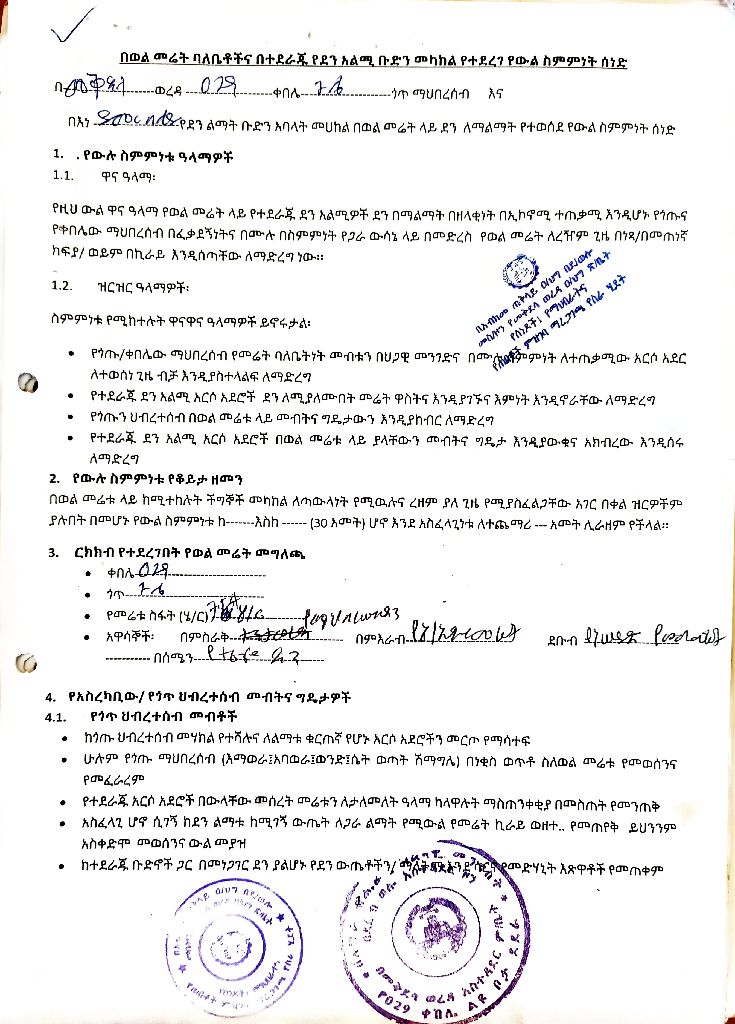 በወል መሬት ባለቤቶችና በተደራጁ የደን አልሚ ቡድን መካከል የተደረገ የውል ስምምነት ሰነድ
በመቅደላ ወረዳ 029 ቀበሌ ጎጥ ማህበረሰብ እና
በእነ የደን ልማት ቡድን አባላት መሀከል በወል መሬት ላይ ደን ለማልማት የተወሰደ የውል ስምምነት ሰነድ
1. . የውሉ ስምምነቱ ዓላማዎች
1.1. ዋና ዓላማ፡
የዚህ ውል ዋና ዓላማ የወል መሬት ላይ የተደራጁ ደን አልሚዎች ደን በማልማት በዘላቂነት በኢኮኖሚ ተጠቃሚ እንዲሆኑ የጎጡና
የቀበሌው ማህበረሰብ በፈቃደኝነትና በሙሉ በስምምነት የጋራ ውሳኔ ላይ በመድረስ የወል መሬት ለረዥም ጊዜ በነጻ/በመጠነኛ
ክፍያ/ ወይም በኪራይ እንዲሰጣቸው ለማድረግ ነው፡፡
1.2. ዝርዝር ዓላማዎች፡
ስምምነቱ የሚከተሉት ዋናዋና ዓላማዎች ይኖሩታል፡
• የጎጡ/ቀበሌው ማህበረሰብ የመሬት ባለቤትነት መብቱን በህጋዊ መንገድና በሙሉ ስምምነት ለተጠቃሚው አርሶ አደር
ለተወሰነ ጊዜ ብቻ እንዲያስተላልፍ ለማድረግ
• የተደራጁ ደን አልሚ አርሶ አደሮች ደን ለሚያለሙበት መሬት ዋስትና እንዲያገኙና እምነት እንዲኖራቸው ለማድረግ
• የጎጡን ህብረተሰብ በወል መሬቱ ላይ መብትና ግዴታውን እንዲያከብር ለማድረግ
• የተደራጁ ደን አልሚ አርሶ አደሮች በወል መሬቱ ላይ ያላቸውን መብትና ግዴታ እንዲያውቁና አክብረው እንዲሰሩ
ለማድረግ
2. የውሉ ስምምነቱ የቆይታ ዘመን
በወል መሬቱ ላይ ከሚተከሉት ችግኞች መካከል ለጣውላነት የሚዉሉና ረዘም ያለ ጊዜ የሚያስፈልጋቸው አገር በቀል ዝርዎችም
ያሉበት በመሆኑ የውል ስምምነቱ ከ-------እስከ ------ (30 አመት) ሆኖ እንደ አስፈላጊነቱ ለተጨማሪ --- አመት ሊራዘም የችላል፡፡
3. ርክክብ የተደረገበት የወል መሬት መግለጫ
• ቀበሌ 029
• ጎጥ
• የመሬቱ ስፋት (ሄ/ር)
• አዋሳኞች፡ በምስራቅ በምእራብ ደቡብ
በሰሜን
4. የአስረካቢው/ የጎጥ ህብረተሰብ መብትና ግዴታዎች
4.1. የጎጥ ህብረተሰብ መብቶች
• ከጎጡ ህብረተሰብ መሃከል የተሻሉና ለልማቱ ቁርጠኛ የሆኑ አርሶ አደሮችን መርጦ የማሳተፍ
• ሁሉም የጎጡ ማህበረሰብ (እማወራ፤አባወራ፤ወንድ፤ሴት ወጣት ሽማግሌ) በነቂስ ወጥቶ ስለወል መሬቱ የመወሰንና
የመፈራረም
• የተደራጁ አርሶ አደሮች በውላቸው መሰረት መሬቱን ለታለመለት ዓላማ ካላዋሉት ማስጠንቀቂያ በመስጠት የመንጠቅ
• አስፈላጊ ሆኖ ሲገኝ ከደን ልማቱ ከሚገኝ ውጤት ለጋራ ልማት የሚውል የመሬት ኪራይ ወዘተ.. የመጠየቅ ይህንንም
አስቀድሞ መወሰንና ውል መያዝ
• ከተደራጁ ቡድኖች ጋር በመነጋገር ደን ያልሆኑ የደን ውጤቶችን/ የመድሃኒት እጽዋቶች የመጠቀም